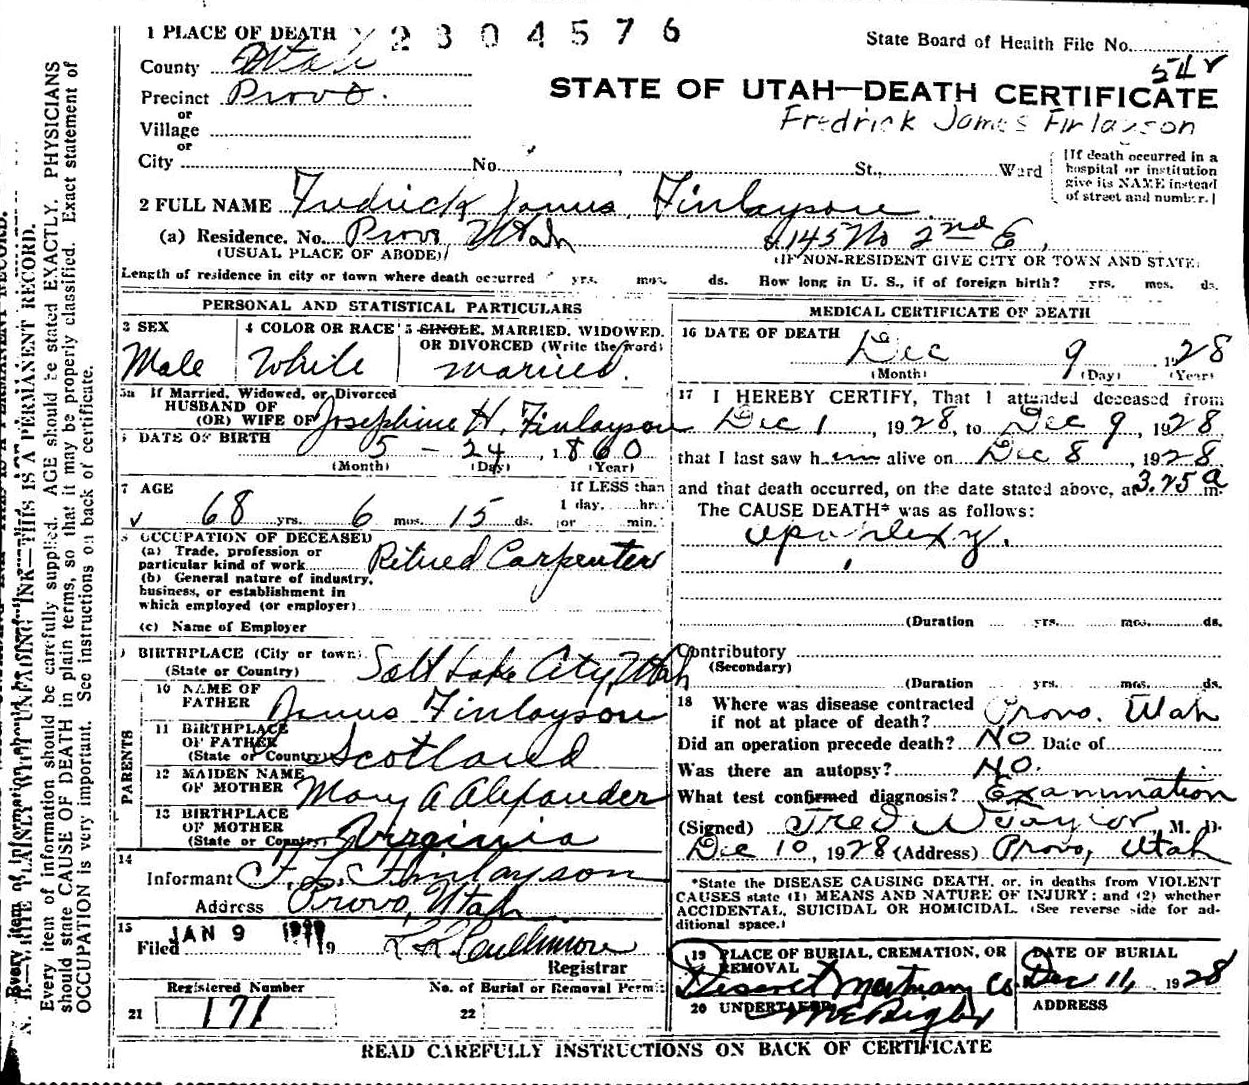 1 PLACE OF DEATH 2304576
State Board of Health File No.
County Utah
Precinct Provo.
or
Village
or
City No. St., Ward
STATE OF UTAH—DEATH CERTIFICATE
Fredrick James Finlayson
(If death occurred in a
hospital or institution
give its NAME instead
of street and number.)
2 FULL NAME Fredrick James Finlayson.
(a) Residence. No. Provo, Utah 145 No 2nd E,
(USUAL PLACE OF ABODE) (IF NON-RESIDENT GIVE CITY OR TOWN AND STATE)
Length of residence in city or town where death occurred yrs. mos. ds. How long in U. S., if of foreign birth? yrs. mos. ds.
PERSONAL AND STATISTICAL PARTICULARS
3 SEX
Male
4 COLOR OR RACE
White
5 SINGLE, MARRIED, WIDOWED,
OR DIVORCED (Write the word)
married.
5a If Married, Widowed, or Divorced
HUSBAND OF
(OR) WIFE OF Josephine H. Finlayson
6 DATE OF BIRTH 5 - 24, 1860
(Month) (Day) (Year)
7 AGE
68 yrs. 6 mos. 15 ds.
If LESS than
1 day, hrs.
or min.
8 OCCUPATION OF DECEASED
(a) Trade, profession or
particular kind of work Retired Carpenter
(b) General nature of industry,
business, or establishment in
which employed (or employer)
(c) Name of Employer
9 BIRTHPLACE (City or town)
(State or Country) Salt Lake City, Utah
PARENTS
10 NAME OF
FATHER James Finlayson
11 BIRTHPLACE
OF FATHER
(State or Country) Scotland
12 MAIDEN NAME
OF MOTHER Mary A Alexander
13 BIRTHPLACE
OF MOTHER
(State or Country) Virginia
14
Informant F. L. Finlayson
Address Provo, Utah
15
Filed JAN 9 19
Registrar
Registered Number
21 171
No. of Burial or Removal Permit
22
MEDICAL CERTIFICATE OF DEATH
16 DATE OF DEATH
Dec 9 1928
(Month) (Day) (Year)
17 I HEREBY CERTIFY, That I attended deceased from
Dec 1, 1928, to Dec 9, 1928
that I last saw him alive on Dec 8, 1928
and that death occurred, on the date stated above, at 3.25 a m.
The CAUSE DEATH* was as follows:
apoplexy.
(Duration yrs. mos. ds.
Contributory
(Secondary)
(Duration yrs. mos. ds.
18 Where was disease contracted
if not at place of death? Provo, Utah
Did an operation precede death? No Date of
Was there an autopsy? No.
What test confirmed diagnosis? Examination
(Signed) Fred W Taylor M. D.
Dec 10, 1928 (Address) Provo, Utah
*State the DISEASE CAUSING DEATH, or, in deaths from VIOLENT
CAUSES state (1) MEANS AND NATURE OF INJURY; and (2) whether
ACCIDENTAL, SUICIDAL OR HOMICIDAL. (See reverse side for ad-
ditional space.)
19 PLACE OF BURIAL, CREMATION, OR
REMOVAL
DATE OF BURIAL
Deseret Mortuary Co. Dec 11, 1928
20 UNDERTAKER
ADDRESS
READ CAREFULLY INSTRUCTIONS ON BACK OF CERTIFICATE
N. B.—WRITE PLAINLY WITH UNFADING INK—THIS IS A PERMANENT RECORD.
Every item of information should be carefully supplied. AGE should be stated EXACTLY. PHYSICIANS
should state CAUSE OF DEATH in plain terms, so that it may be properly classified. Exact statement of
OCCUPATION is very important. See instructions on back of certificate.